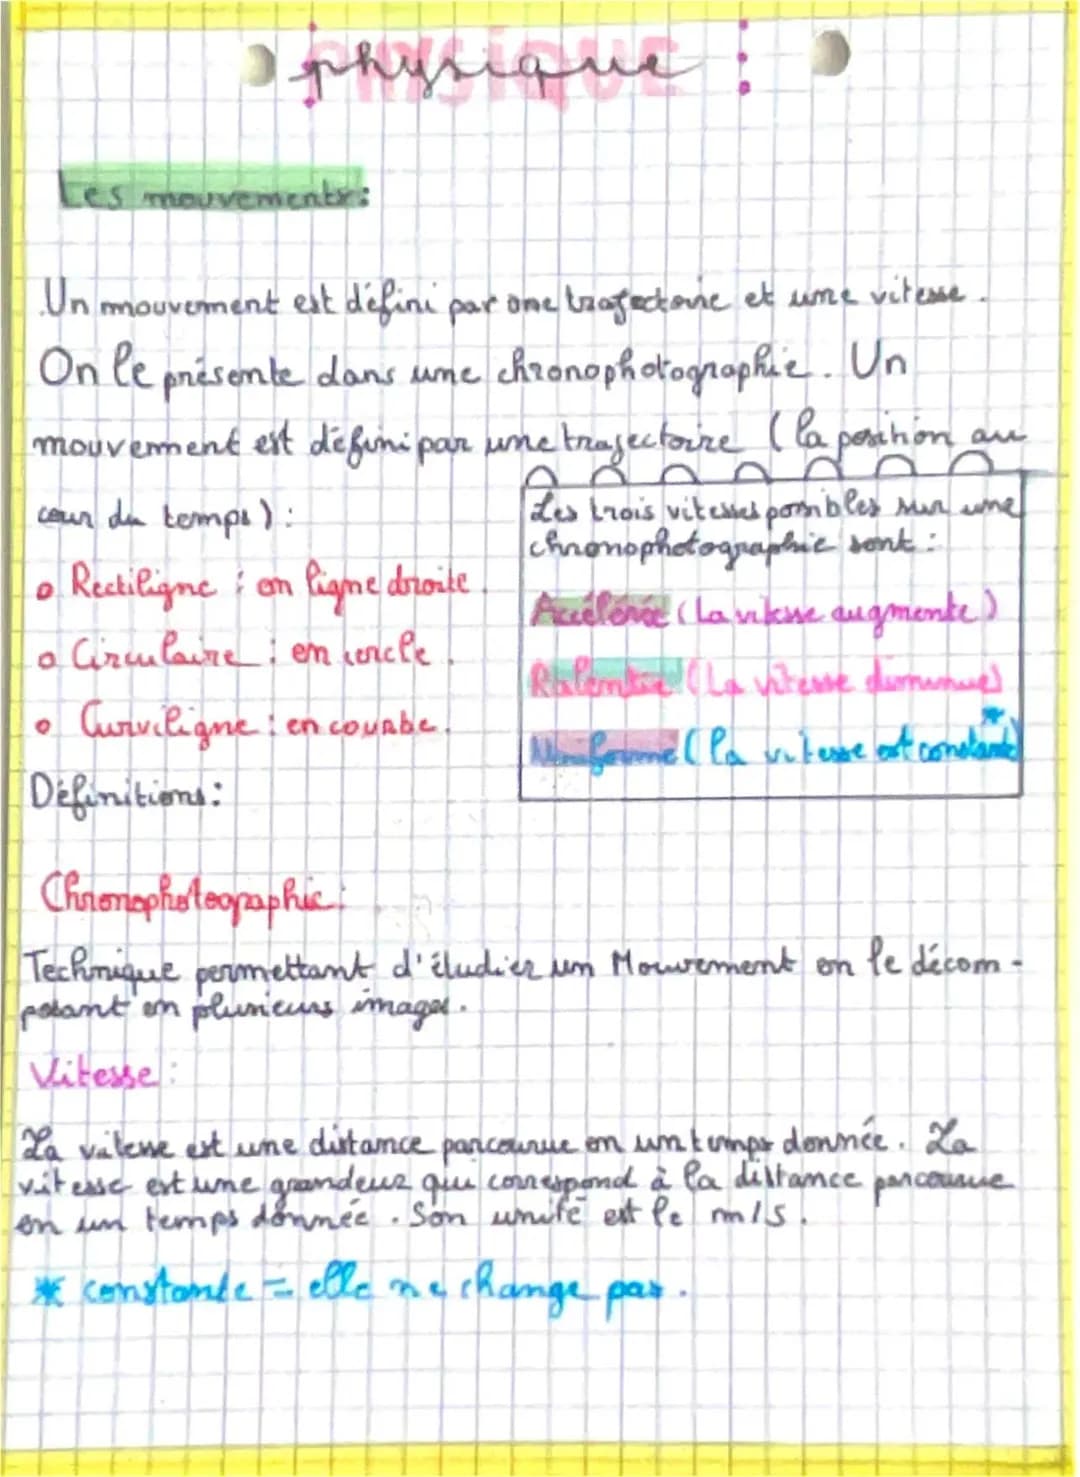 physique
Les mouvements:
Un mouvement est défini par une trajectoire et une vitesse.
On le présente dans une chronophotographie. Un
mouvement est défini par une trajectoire (la position au
cour du temps):
• Rectiligne : en ligne droite.
• Circulaire : en cercle.
• Curviligne : en courbe.
Les trois vitesses possibles sur une
chronophotographie sont :
Accélérée (La vitesse augmente)
Ralentie (La vitesse diminue)
Uniforme (la vitesse est constante*)
Définitions:
Chronophotographie:
Technique permettant d'étudier un Mouvement en le décom-
posant en plusieurs images.
Vitesse:
La vitesse est une distance parcourue en un temps donnée. La
vitesse est une grandeur qui correspond à la distance parcourue
en un temps donnée. Son unité est le m/s.
* constante = elle ne change pas.